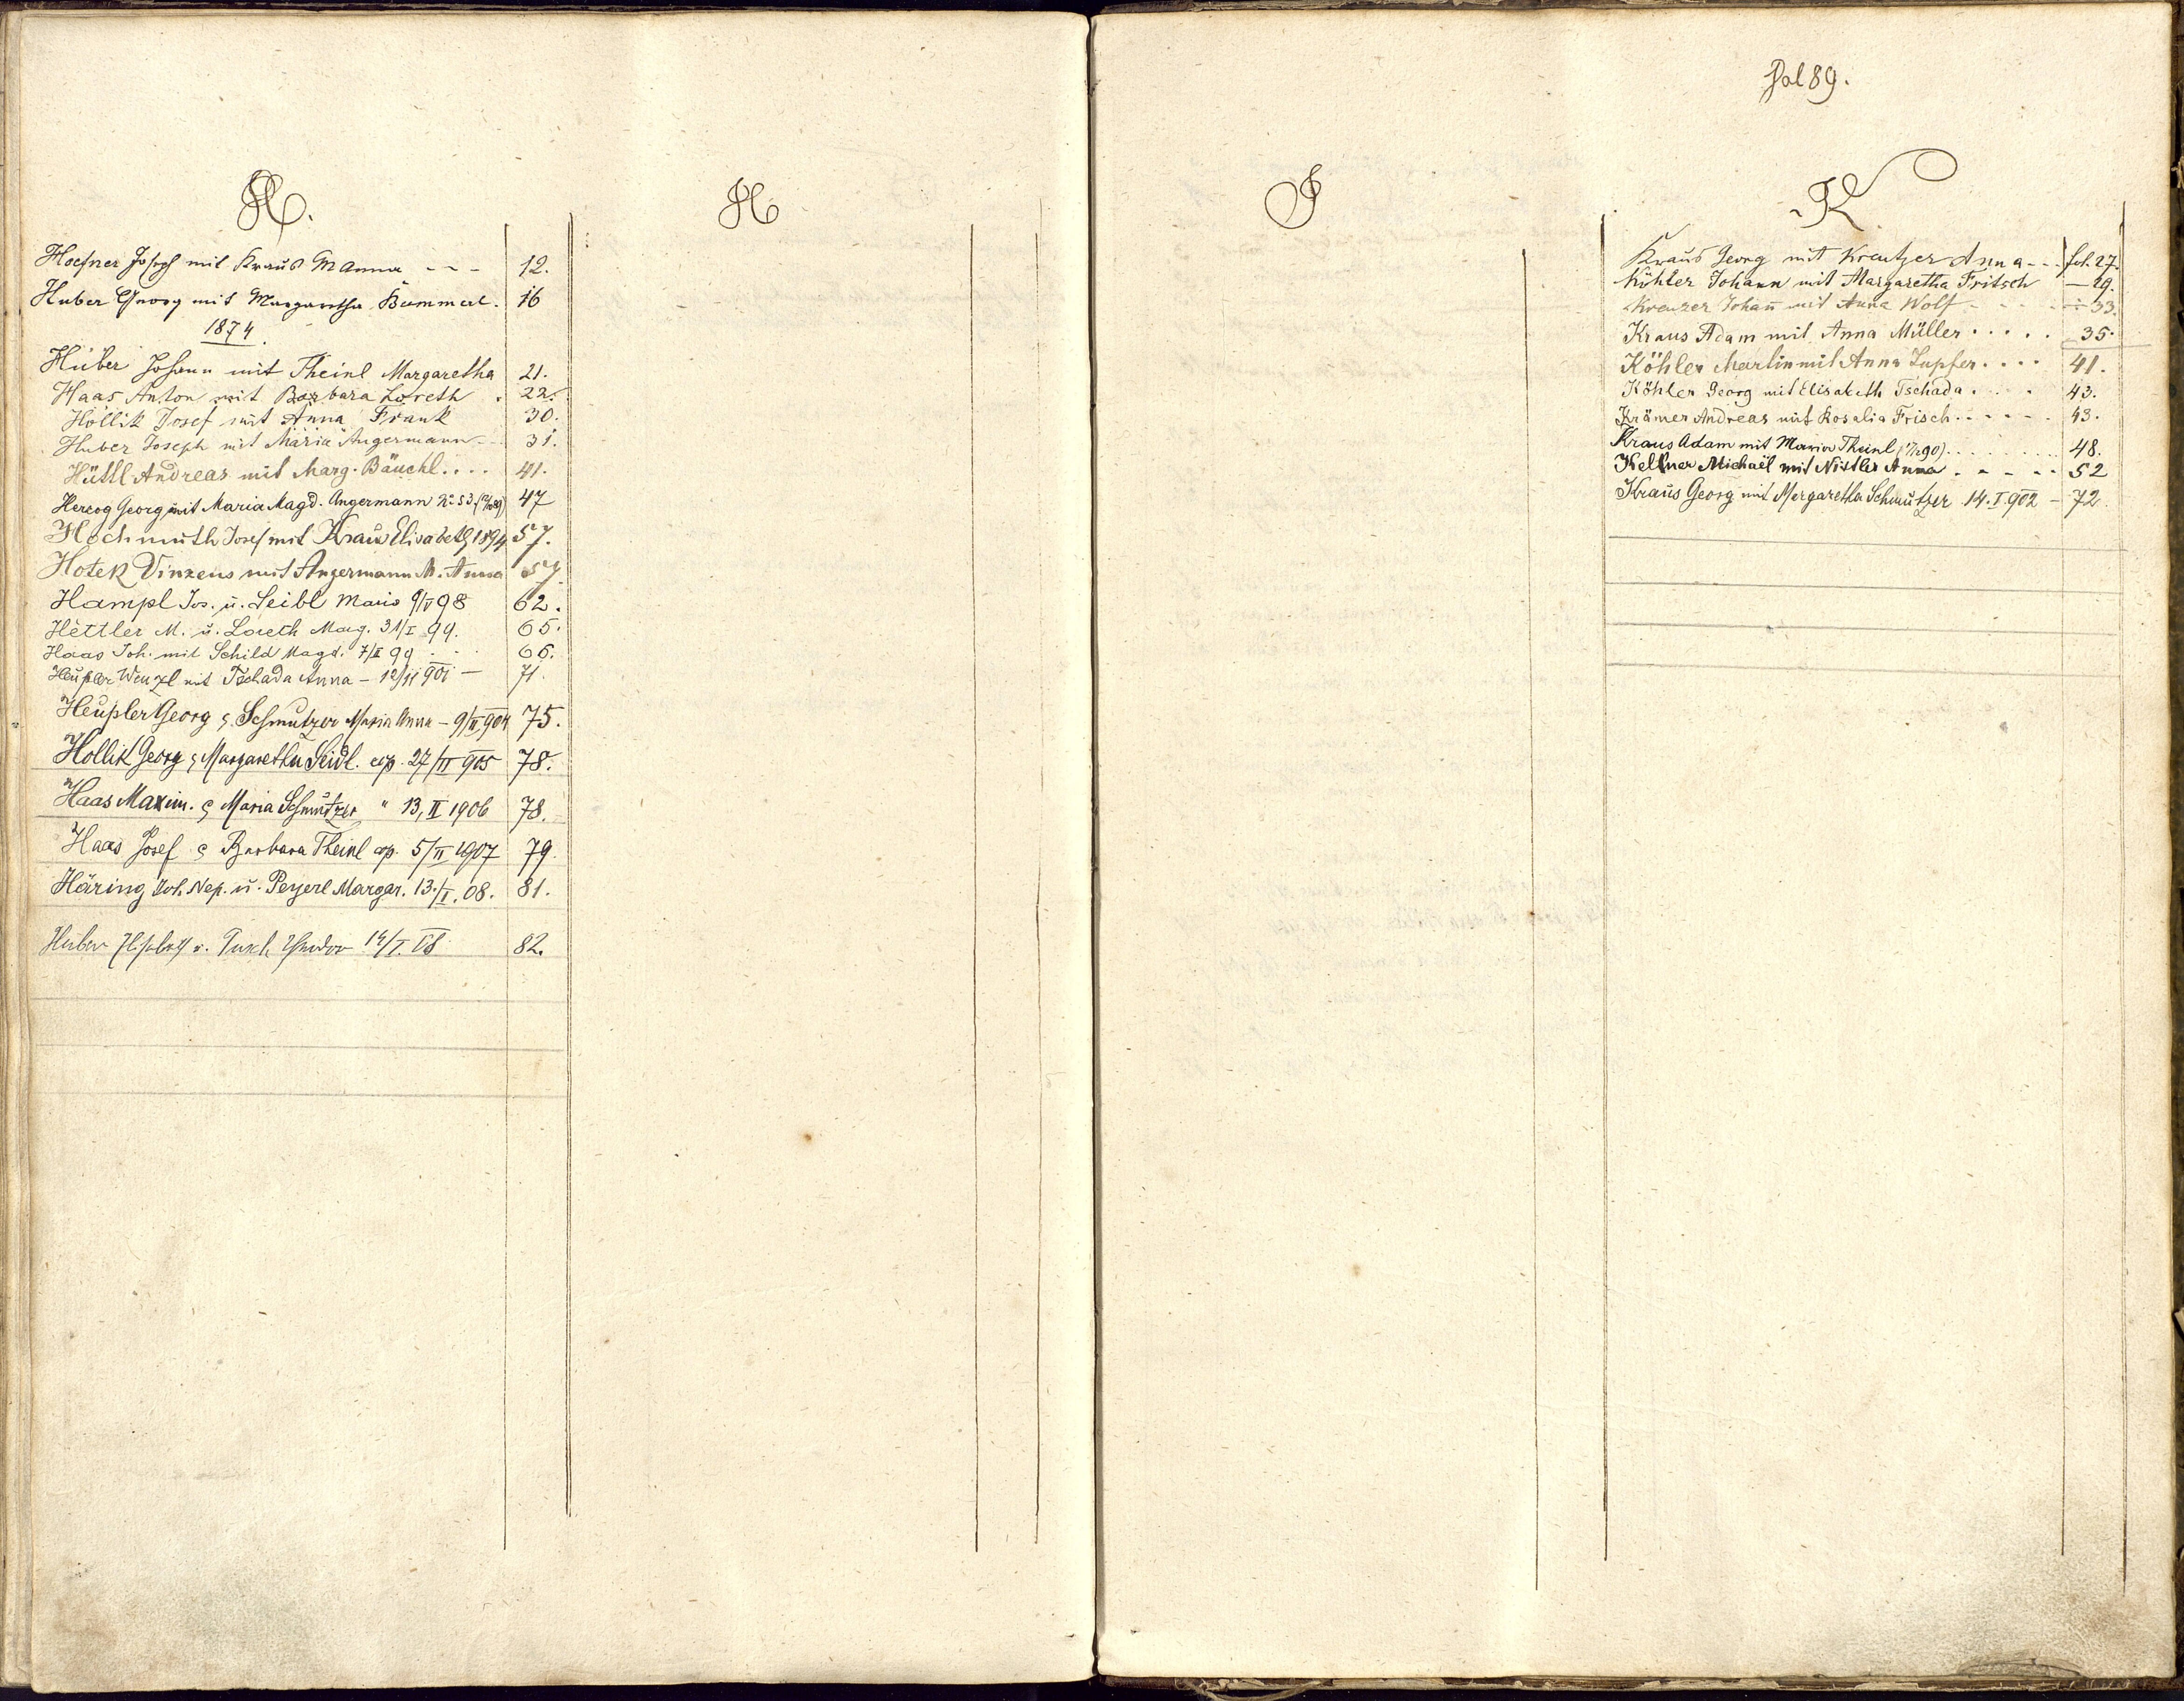 H.
Hoefner Joseph mit Kraus M Anna - - - 12.
Huber Georg mit Margaretha Bummerl. 16
1874.
Huber Johann mit Theinl Margaretha 21.
Haas Anton mit Barbara Loreth . 22.
Hollik Josef mit Anna Frank 30.
Huber Joseph mit Maria Angermann - - 31.
Hüttl Andreas mit Marg. Bäuchl . . . . 41.
Herzog Georg mit Maria Magd. Angermann No 53. 47
Hochmuth Josef mit Kraus Elisabeth 1894 57.
Hotek Vinzens mit Angermann M. Anna 57.
Hampl Jos. u. Seibl Maria 9/V 98 62.
Hettler M. u. Loreth Marg. 31/I 99. 65.
Haas Joh. mit Schild Magd. 7/II 99 . . . 66.
Heupler Wenzl mit Tschada Anna - 12/11 901 - 71.
Heupler Georg & Schmutzer Maria Anna - 9/II 904 75.
Hollik Georg & Margaretha Seidl. cop. 27/II 905 78.
Haas Maxim. & Maria Schmutzer " 13, II 1906 78.
Haas Josef & Barbara Theinl cop. 5/II 1907 79.
Häring Joh. Nep. u. Peyerl Margar. 13./I. 08. 81.
Huber 14/I. 08 82.
H
J
Fol 89.
K
Kraus Georg mit Kreutzer Anna - - - fol. 27.
Köhler Johann mit Margaretha Fritsch — 29.
Kreuzer Johann mit Anna Wolf - - - 33.
Kraus Adam mit Anna Müller . . . . . 35.
Köhler Martin mit Anna Lupfer . . . . 41.
Köhler Georg mit Elisabeth Tschada . . . . 43.
Krämer Andreas mit Rosalia Frisch . - - - - . 43.
Kraus Adam mit Maria Theinl . . . . . . . . 48.
Kellner Michael mit Nistler Anna . - - - . 52
Kraus Georg mit Margaretha Schmutzer 14. I. 902 - 72.